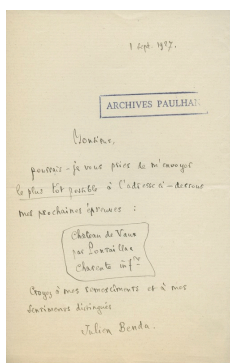 1 Sept. 1927.
ARCHIVES PAULHAN
Monsieur,
pourrais-je vous prier de m'envoyer
le plus tôt possible à l'adresse ci-dessous
mes prochaines épreuves :
Château de Vaux
par
Charente infre
Croyez à mes remerciements et à mes
sentiments distingués
Julien Benda.